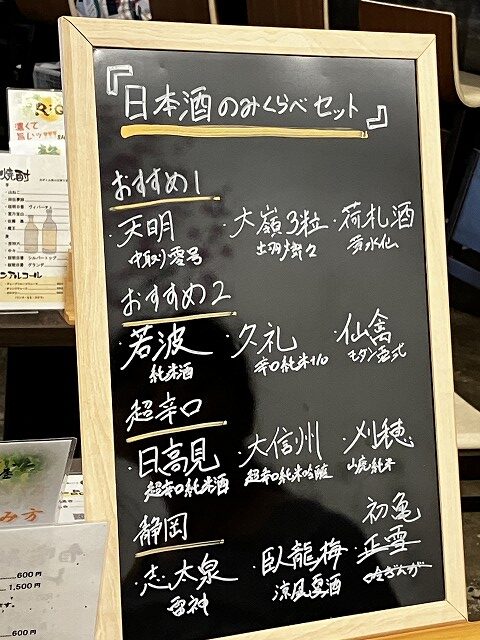 『日本酒のみくらべセット』
おすすめ1
・天明 ・大嶺3粒 ・荷札酒
中取り零号 出羽燦々
おすすめ2
・若波 ・久礼 ・仙禽
純米酒 辛口純米+10 モダン
超辛口
・日高見 ・大信州 ・刈穂
超辛口純米酒 超辛口純米吟醸 山廃純米
静岡
初亀
・志太泉 ・臥龍梅 ・正雪
雷神 涼風夏酒
焼酎
ノンアルコール
み方
600円
1,500円
600円